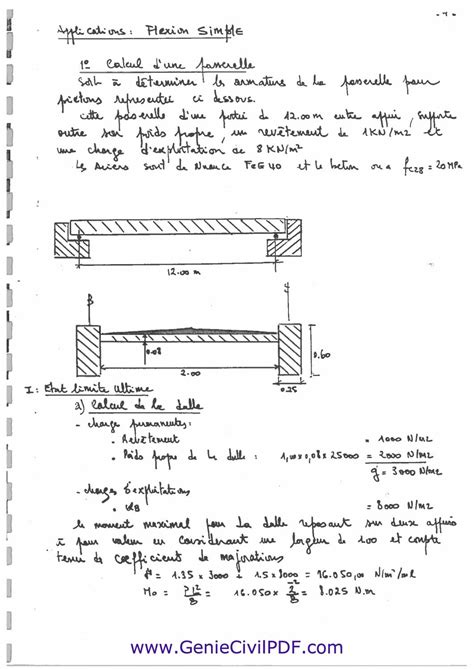 - 1 -
Applications : Flexion Simple
1° Calcul d'une passerelle
Soit à déterminer les armatures de la passerelle pour
piétons représentée ci dessous.
Cette passerelle d'une portée de 12.00m entre appuis, supporte
outre son poids propre, un revêtement de 1KN/m2 et
une charge d'exploitation de 8 KN/m²
Les Aciers sont de Nuance FeE40 et le beton on a fc28 = 20 MPa
12.00 m
0.08
2.00
0.60
0.25
I : Etat limite Ultime
a) Calcul de la dalle
- charge permanentes :
• Revêtement = 1000 N/m2
• Poids propre de la dalle : 1,00x0,08x25000 = 2000 N/m2
g = 3000 N/m2
- charges d'exploitations
= 8000 N/m2
le moment maximal pour la dalle reposant sur deux appuis
à pour valeur en considerant une largeur de 1.00 et compte
tenu de coefficient de majorations
= 1.35 x 3000 + 1.5 x 8000 = 16.050,00 N/m²/ml
Mo = Pl²/8 = 16.050 x 2²/8 = 8.025 N.m
www.GenieCivilPDF.com